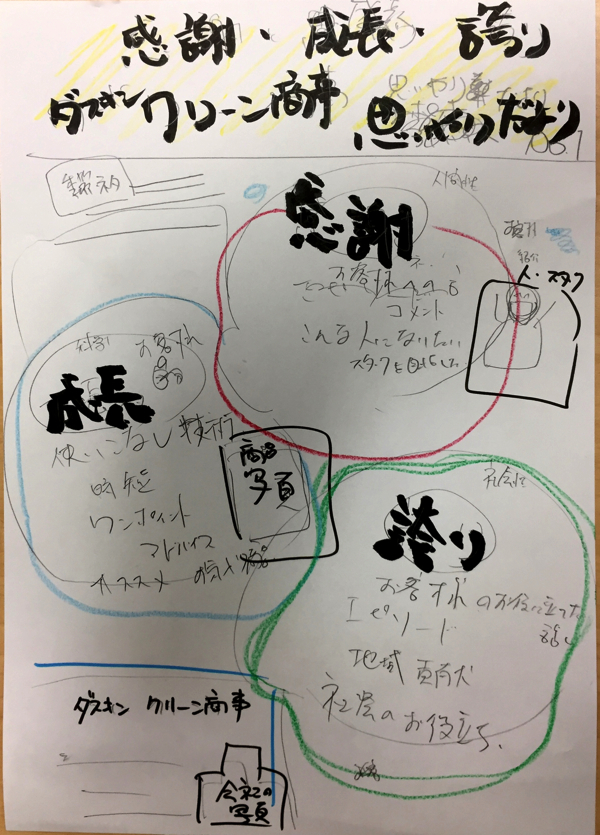 感謝・成長・誇り
ダスキンクリーン商事 思いやりだより
感謝
人間性
お客様への
コメント
こんな人になりたい
スタッフを目指した
紹介
人・スタッフ
お客様
成長
使いこなし精術
時短
ワンポイント
アドバイス
オススメ
商品
写真
社会性
誇り
お客様のお役に立てた
エピソード
地域 貢献
社会のお役立ち
ダスキン クリーン商事
会社の
写真